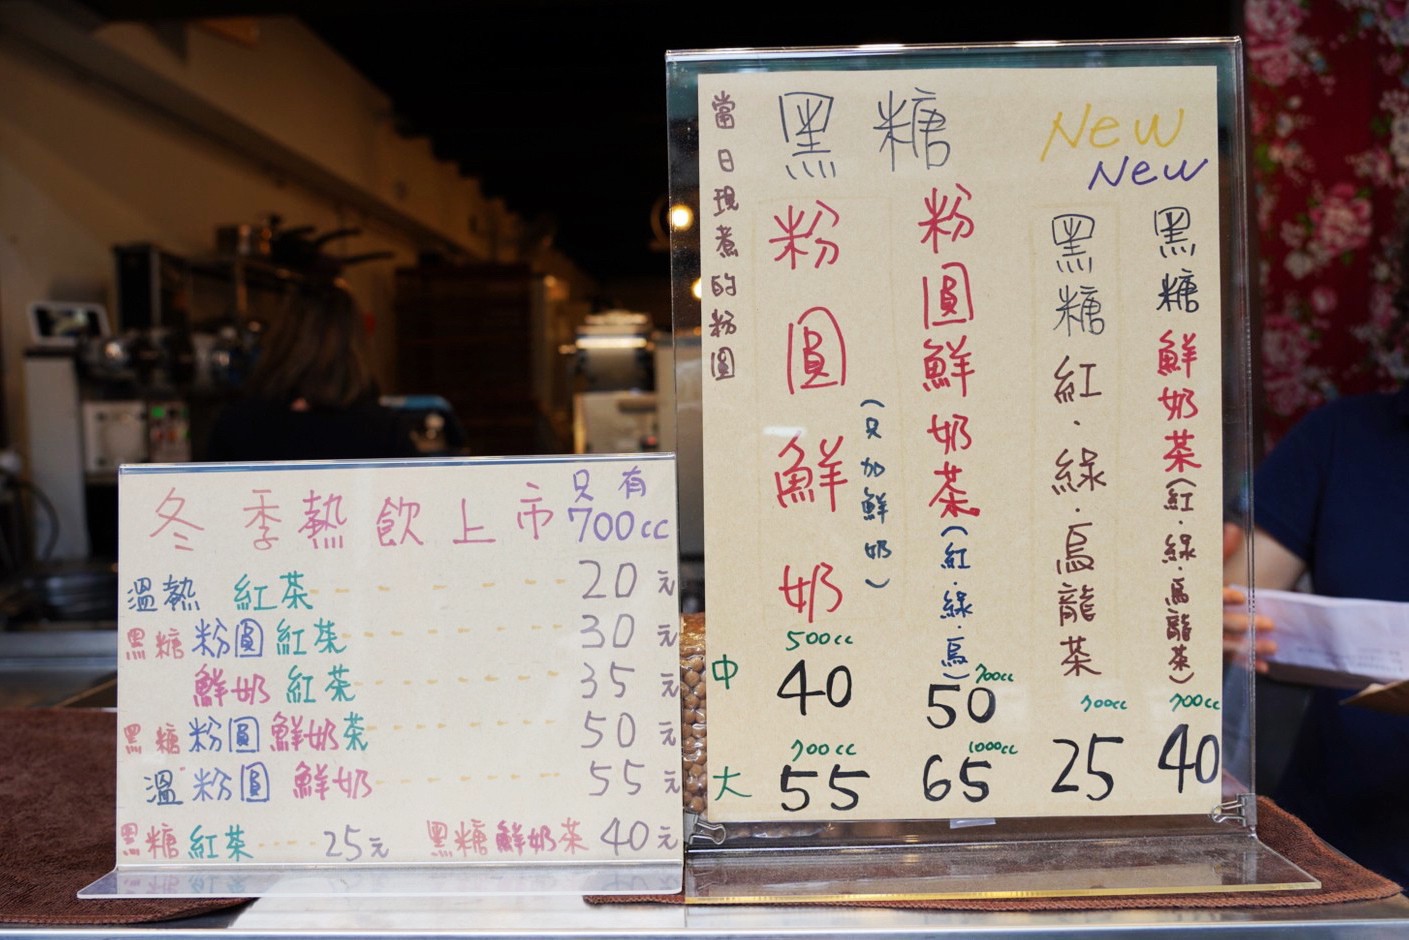 冬季熱飲上市 只有700cc
溫熱 紅茶 20元
黑糖粉圓紅茶 30元
鮮奶紅茶 35元
黑糖粉圓鮮奶茶 50元
溫粉圓鮮奶 55元
黑糖紅茶 25元 黑糖鮮奶茶 40元
當日現煮的粉圓
黑糖
粉圓鮮奶
(只加鮮奶)
粉圓鮮奶茶(紅.綠.烏)
New
New
黑糖紅.綠.烏龍茶
黑糖鮮奶茶(紅.綠.烏龍茶)
中 500cc 40
700cc 50
700cc 25
700cc 40
大 700cc 55
1000cc 65